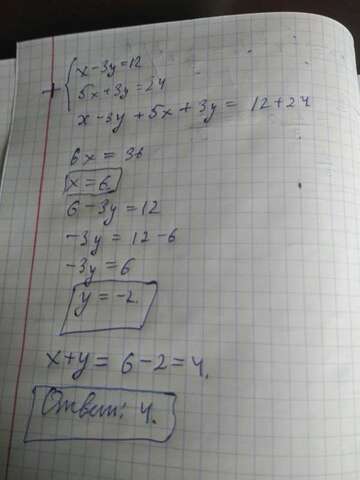 + { x-3y=12
5x+3y=24
x-3y+5x+3y = 12+24
6x = 36
x=6
6-3y=12
-3y = 12-6
-3y = 6
y = -2.
x+y = 6-2=4.
Ответ: 4.